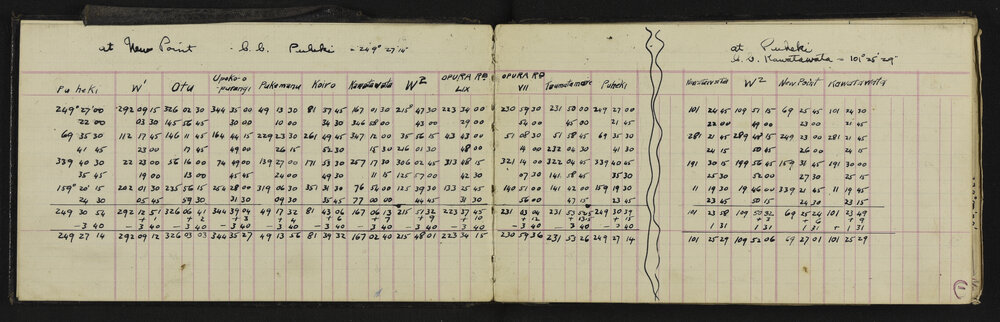 at New Point - G. C. Puheki = 249° 27' 14"
at Puheki
Kawatawata = 101° 25' 29"
Puheki W' Otu Upoko-o-purangi Pukemanu Koiro Kawatawata W2 OPURA RD LIX OPURA RD VII Taumatamaire Puheki Kawatawata W2 New Point Kawatawata
249° 27' 00 292 09 15 326 02 30 344 35 00 49 13 30 81 37 45 167 01 30 215° 47 30 223 34 00 230 59 30 231 50 00 249 27 00 101 24 45 109 51 15 69 25 45 101 24 30
22 00 03 30 145 56 45 30 00 10 00 34 30 346 58 00 43 00 29 00 54 00 45 00 21 45 22 00 49 00 23 00 21 45
69 35 30 112 17 45 146 11 45 164 44 15 229 23 30 261 49 45 347 12 00 35 56 15 43 43 00 51 08 30 51 58 45 69 35 30 281 21 45 289 48 15 249 23 00 281 21 45
41 45 23 00 17 45 49 00 26 15 52 30 15 30 216 01 30 48 00 4 00 232 04 30 41 30 24 15 50 45 26 00 24 15
339 40 30 22 23 00 56 16 00 74 49 00 139 27 00 171 53 30 257 17 30 306 02 45 313 48 15 321 14 00 322 04 45 339 40 45 191 30 15 199 56 45 159 31 45 191 30 00
35 45 19 00 13 00 45 45 24 00 49 30 11 15 125 57 00 42 30 07 30 141 58 45 35 30 25 30 52 00 27 30 25 15
159° 20 15 202 01 30 235 56 15 254 28 00 319 06 30 351 31 30 76 54 00 125 39 30 133 25 45 140 51 00 141 42 00 159 19 30 11 19 30 19 46 00 339 21 45 11 19 45
24 30 05 45 59 30 31 30 09 30 35 45 77 00 00 44 45 31 30 56 00 47 15 23 45 23 45 50 15 24 30 23 15
249 30 54 292 12 51 326 06 41 344 39 04 49 17 32 81 43 06 167 06 13 215 51 32 223 37 45 231 03 04 231 53 52.5 249 30 39 101 23 58 109 50 32 69 25 24 101 23 49
+ 1 + 2 + 3 + 4 + 6 + 7 + 9 + 10 + 12 + 13.5 + 15 + 3 + 6 + 9
- 3 40 - 3 40 - 3 40 - 3 40 - 3 40 - 3 40 - 3 40 - 3 40 - 3 40 - 3 40 - 3 40 - 3 40 1 31 1 31 1 31 + 1 31
249 27 14 292 09 12 326 03 03 344 35 27 49 13 56 81 39 32 167 02 40 215 48 01 223 34 15 230 59 36 231 53 26 249 27 14 101 25 29 109 52 06 69 27 01 101 25 29
1